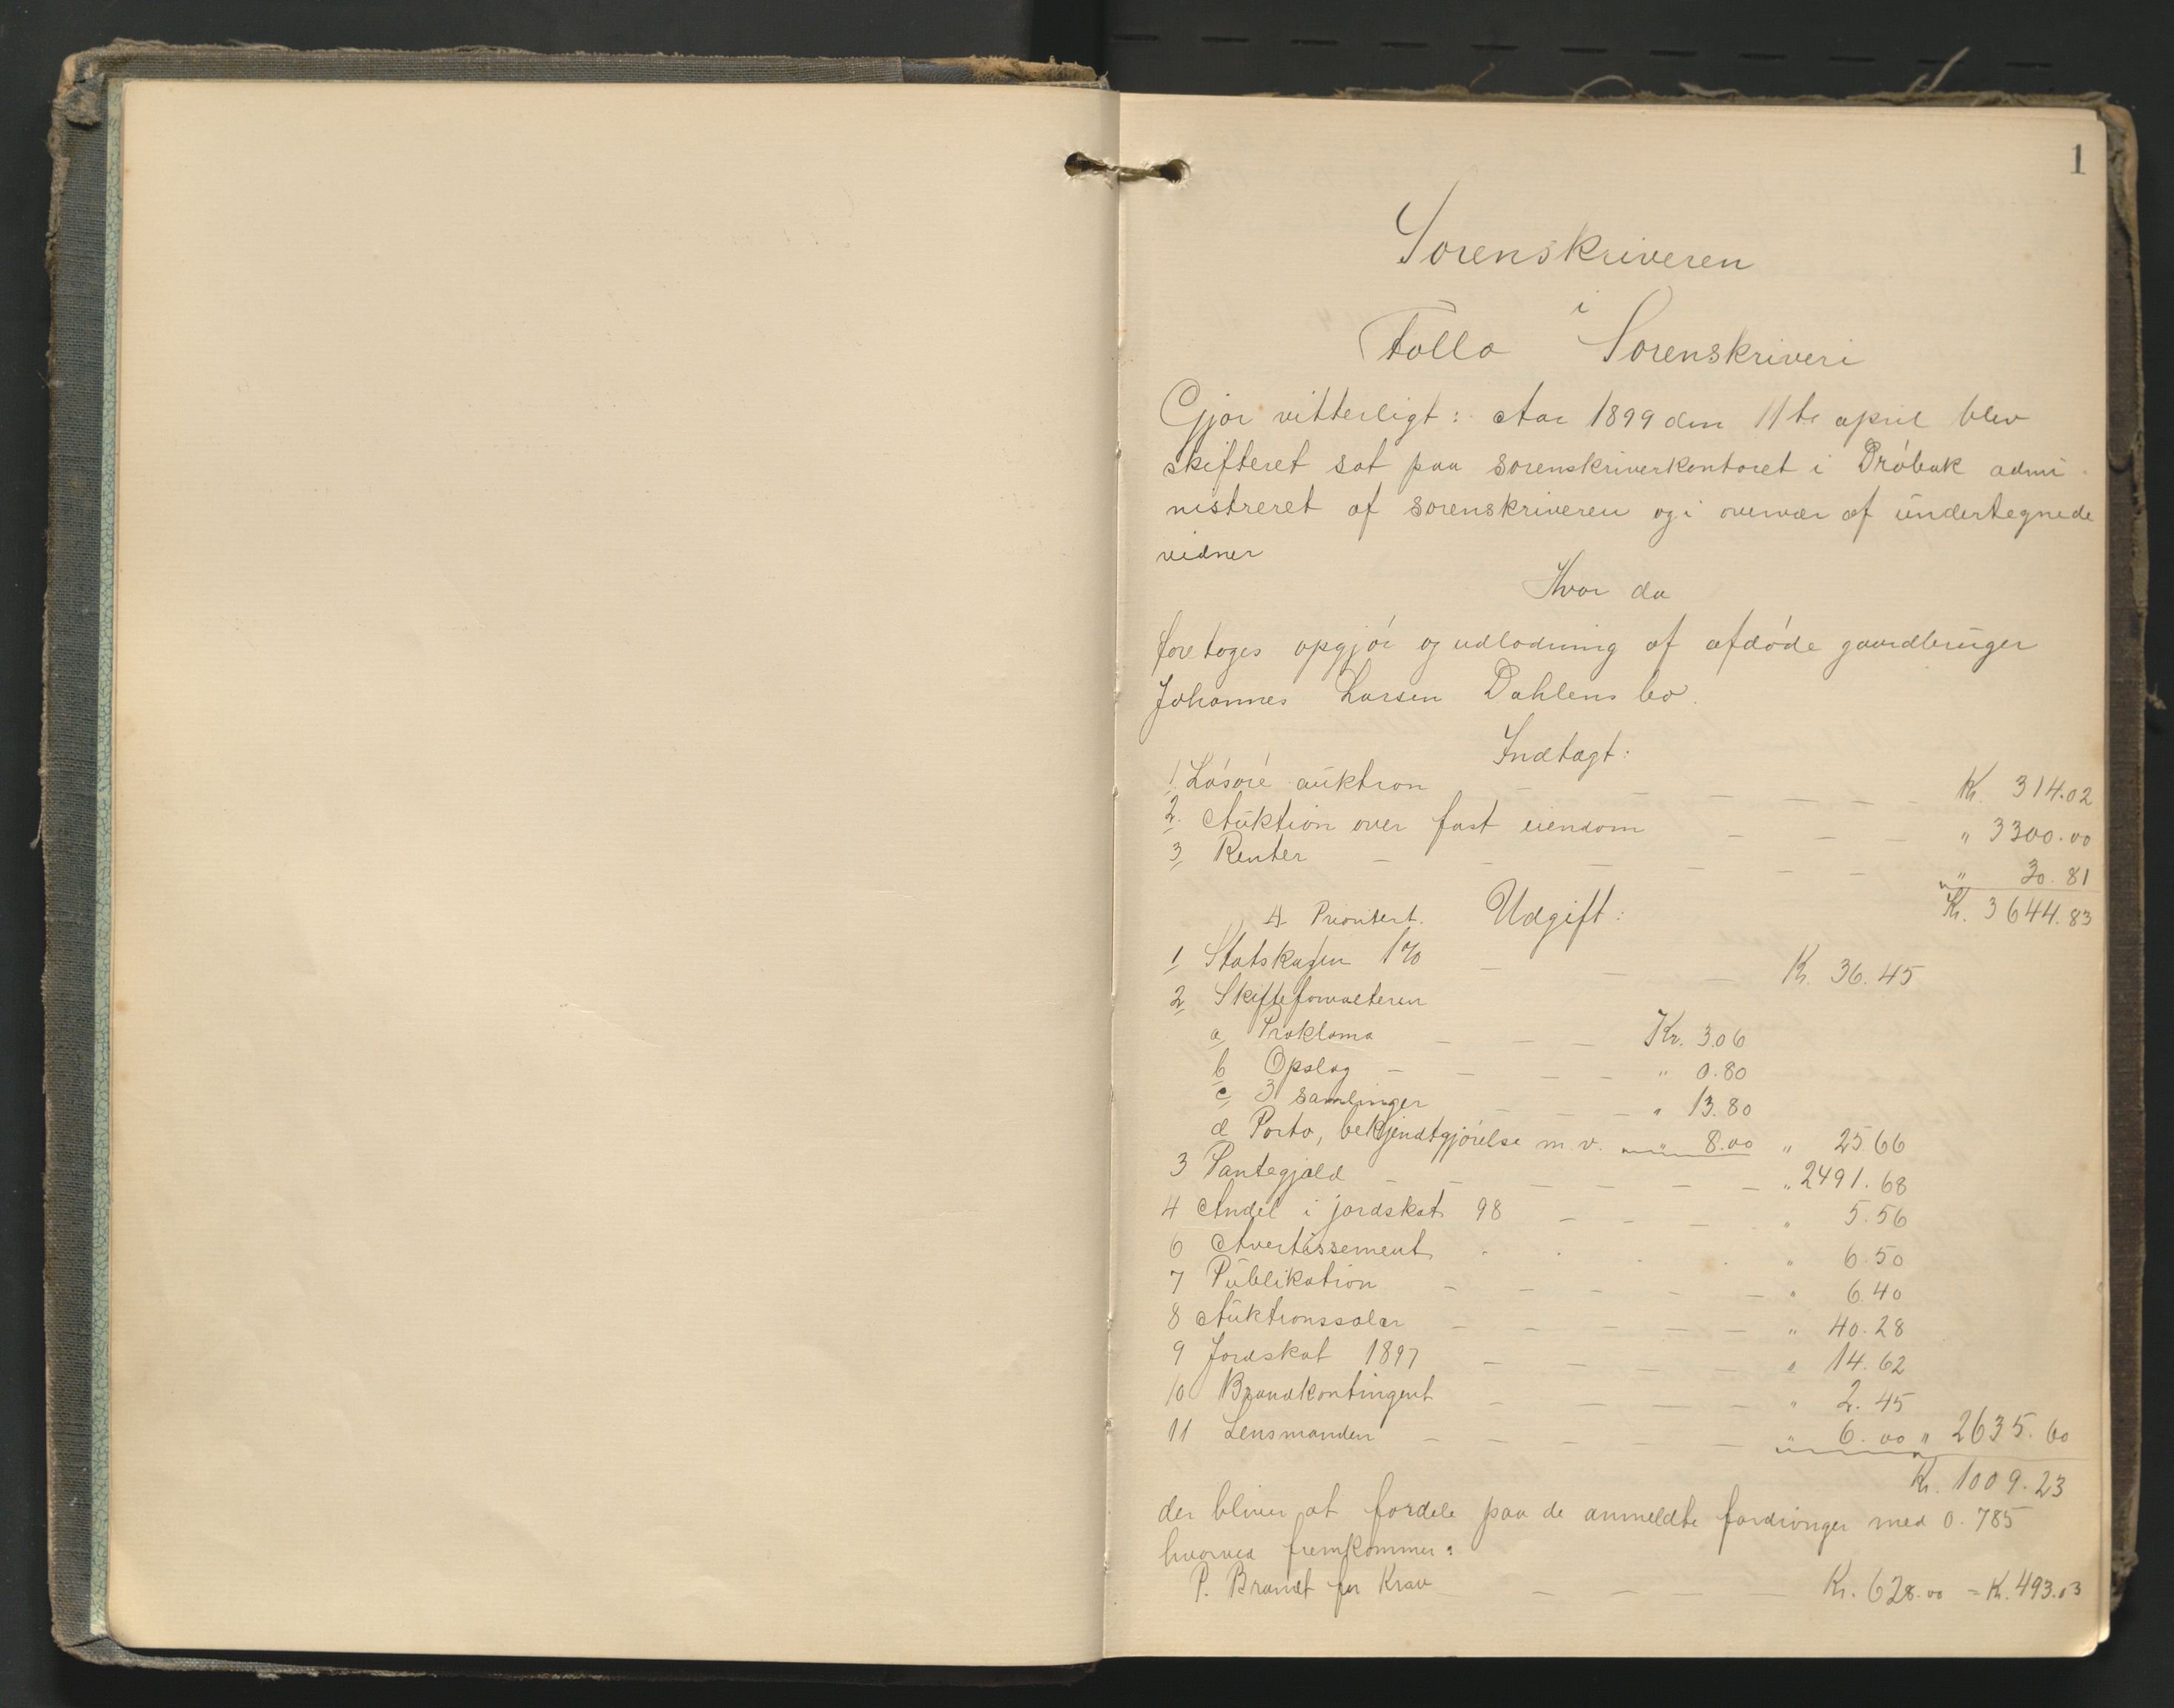 1
Sorenskriveren
i
Follo Sorenskriveri
Gjør vitterligt: Aar 1899 den 11te april blev
skifteret sat paa sorenskriverkontoret i Drøbak admi-
nistreret af sorenskriveren og i overvær af undertegnede
vidner
Hvor da
foretoges opgjør og udlodning af afdøde gaardbruger
Johannes Larsen Dahlens bo.
Indtægt:
1 Løsøre auktion — — — — — Kr. 314.02
2. Auktion over fast eiendom — — — " 3300.00
3 Renter — — — — — — " 30.81
Kr. 3644.83
A Prioritert. Udgift:
1 Statskassen 1% — — — Kr. 36.45
2 Skifteforvalteren
a Proklama — — — Kr. 3.06
b Opslag — — — — " 0.80
c 3 samlinger — — — " 13.80
d Porto, bekjendtgjørelse m.v. " 8.00 " 25.66
3 Pantegjæld — — — — — — " 2491.68
4 Andel i jordskat 98 — — — " 5.56
6 Avertissement . . . . " 6.50
7 Publikation — — — — — " 6.40
8 Auktionssalær — — — — — " 40.28
9 Jordskat 1897 — — — — " 14.62
10 Brandkontingent — — — — " 2.45
11 Lensmanden — — — — — " 6.00 " 2635.60
Kr. 1009.23
der bliver at fordele paa de anmeldte fordringer med 0.785
hvorved fremkommer:
P. Brandt for Krav — — — — Kr. 628.00 = Kr. 493.03